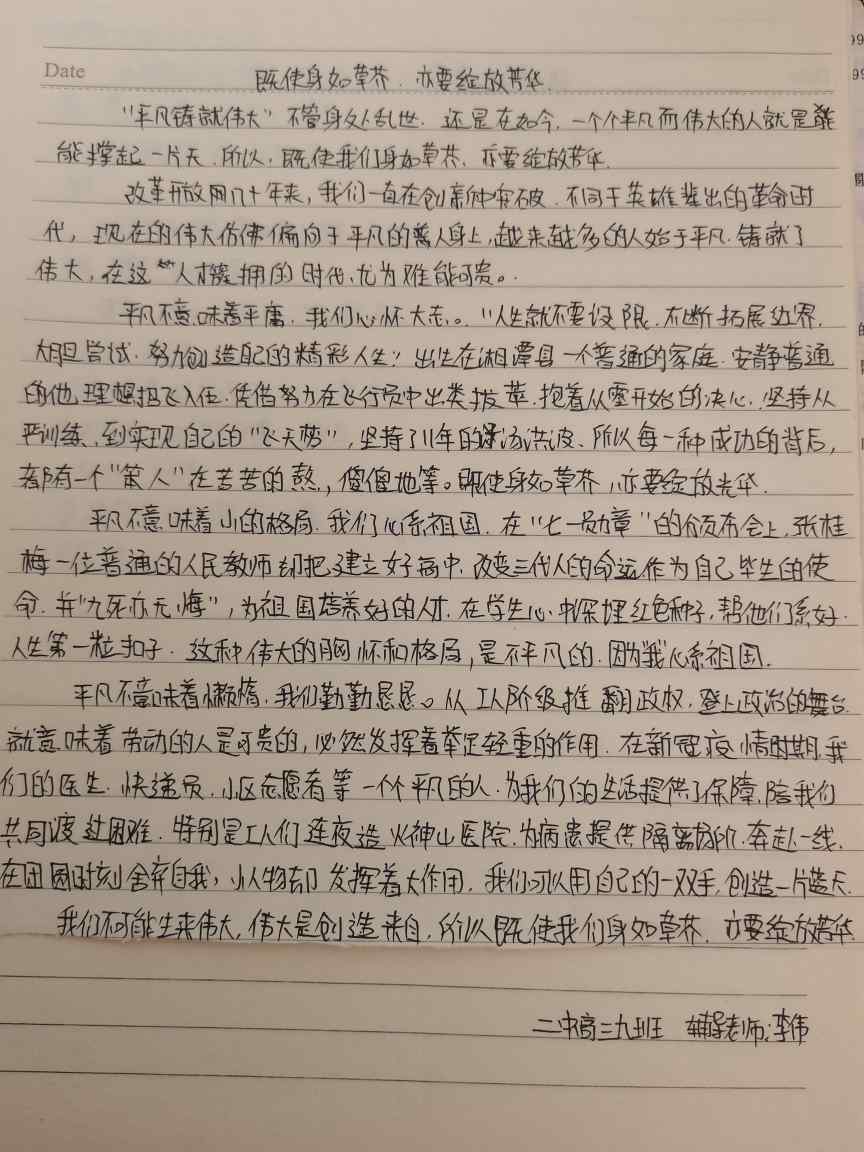 Date
既使身如草芥.亦要绽放芳华.
"平凡铸就伟大"不管身处乱世.还是在如今,一个个平凡而伟大的人就是
能撑起一片天.所以,既使我们身如草芥,亦要绽放芳华.
改革开放四几十年来,我们一直在创新中突破.不同于英雄辈出的革命时
代,现在的伟大仿佛偏向于平凡的普人身上,越来越多的人始于平凡.铸就了
伟大,在这人才簇拥的时代,尤为难能可贵。
平凡不意味着平庸.我们心怀大志。"人生就不要设限.不断拓展边界.
大胆尝试.努力创造自己的精彩人生"出生在湘潭县一个普通的家庭.安静普通
的他.理想招飞入伍.凭借努力在飞行员中出类拔萃.抱着从零开始的决心.坚持从
严训练,到实现自己的"飞天梦",坚持了11年的逐洪波.所以每一种成功的背后,
都有一个"笨人"在苦苦的熬,傻傻地等。既使身如草芥,亦要绽放光华.
平凡不意味着小的格局.我们心系祖国.在"七一勋章"的颁布会上,张桂
梅一位普通的人民教师却把建立好高中.改变三代人的命运作为自己毕生的使
命.并"九死亦无悔",为祖国培养好的人才.在学生心中深埋红色种子,帮他们系好.
人生第一粒扣子.这种伟大的胸怀和格局,是不平凡的.因为我心系祖国.
平凡不意味着懒惰.我们勤勤恳恳。从工人阶级推翻政权,登上政治的舞台.
就意味着劳动的人是可贵的,必然发挥着举足轻重的作用.在新冠疫情时期.我
们的医生.快递员.小区志愿者等一个个平凡的人.为我们的生活提供了保障,陪我们
共同渡过困难.特别是工人们连夜造火神山医院.为病患提供隔离场所.奔赴一线.
在团圆时刻舍弃自我,小人物却发挥着大作用.我们可以用自己的一双手,创造一片蓝天.
我们不可能生来伟大,伟大是创造来自,所以既使我们身如草芥.亦要绽放芳华.
二中高三九班 辅导老师:李伟